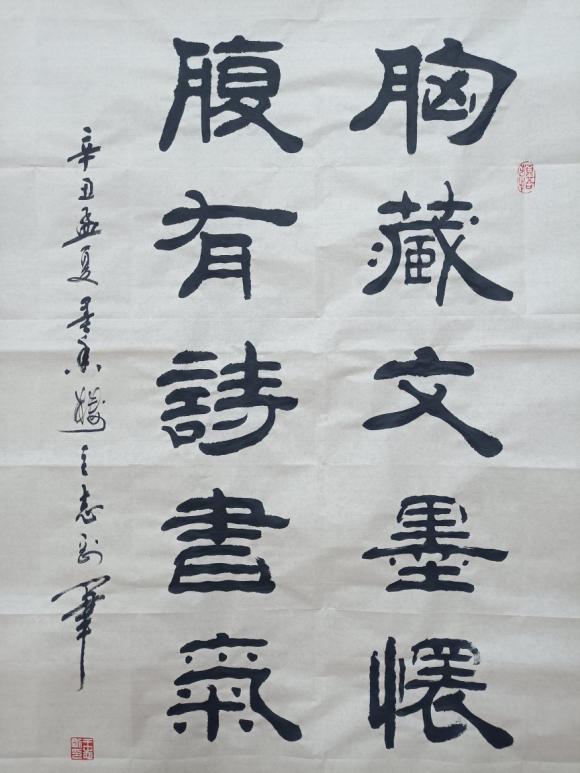 胸藏文墨懷
腹有詩書氣
辛丑孟夏墨香王志剛筆